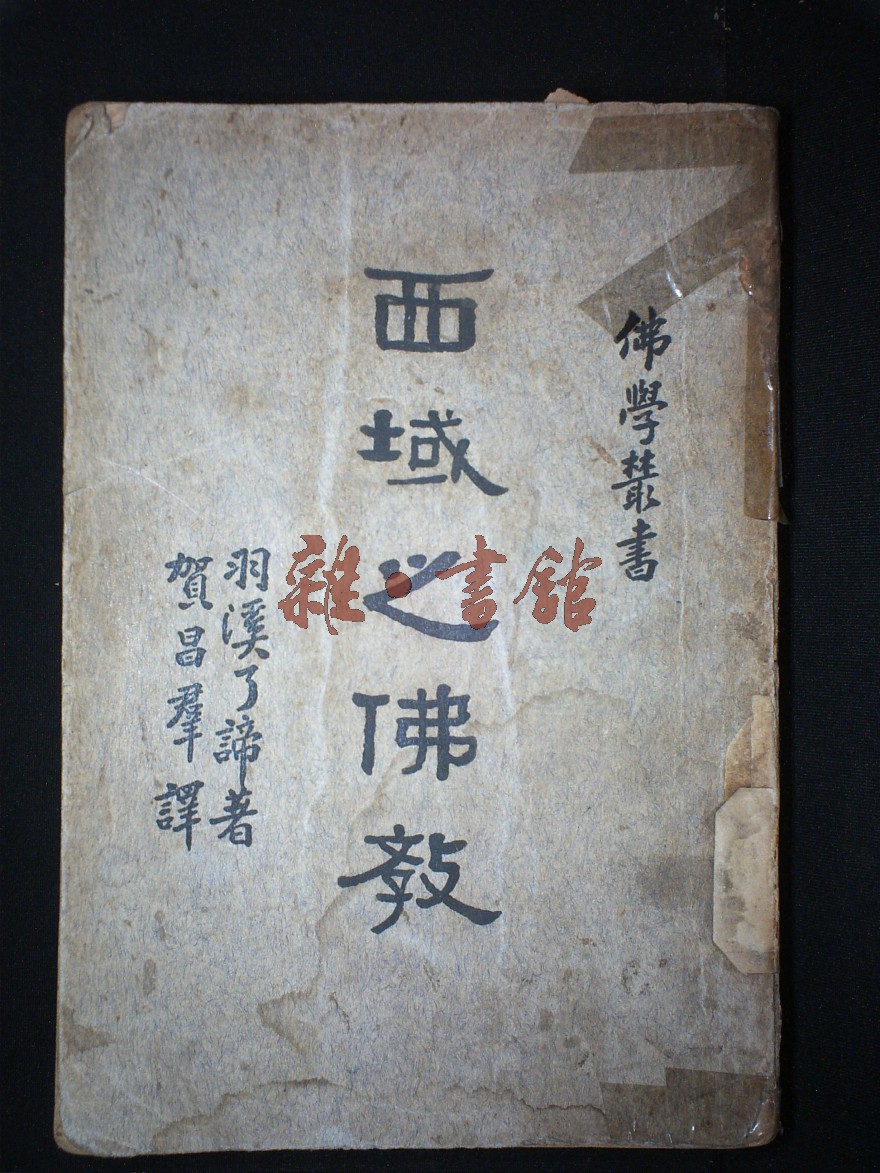 佛學叢書
西域之佛教
羽溪了諦著
賀昌羣譯
雜·書館